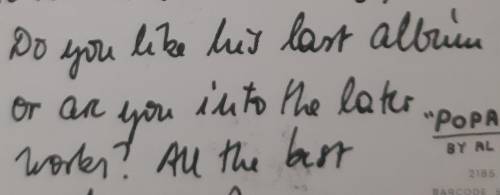 Do you like his last album
or are you into the later
works? All the best
"POPA
BY AL
2185
BARCODE